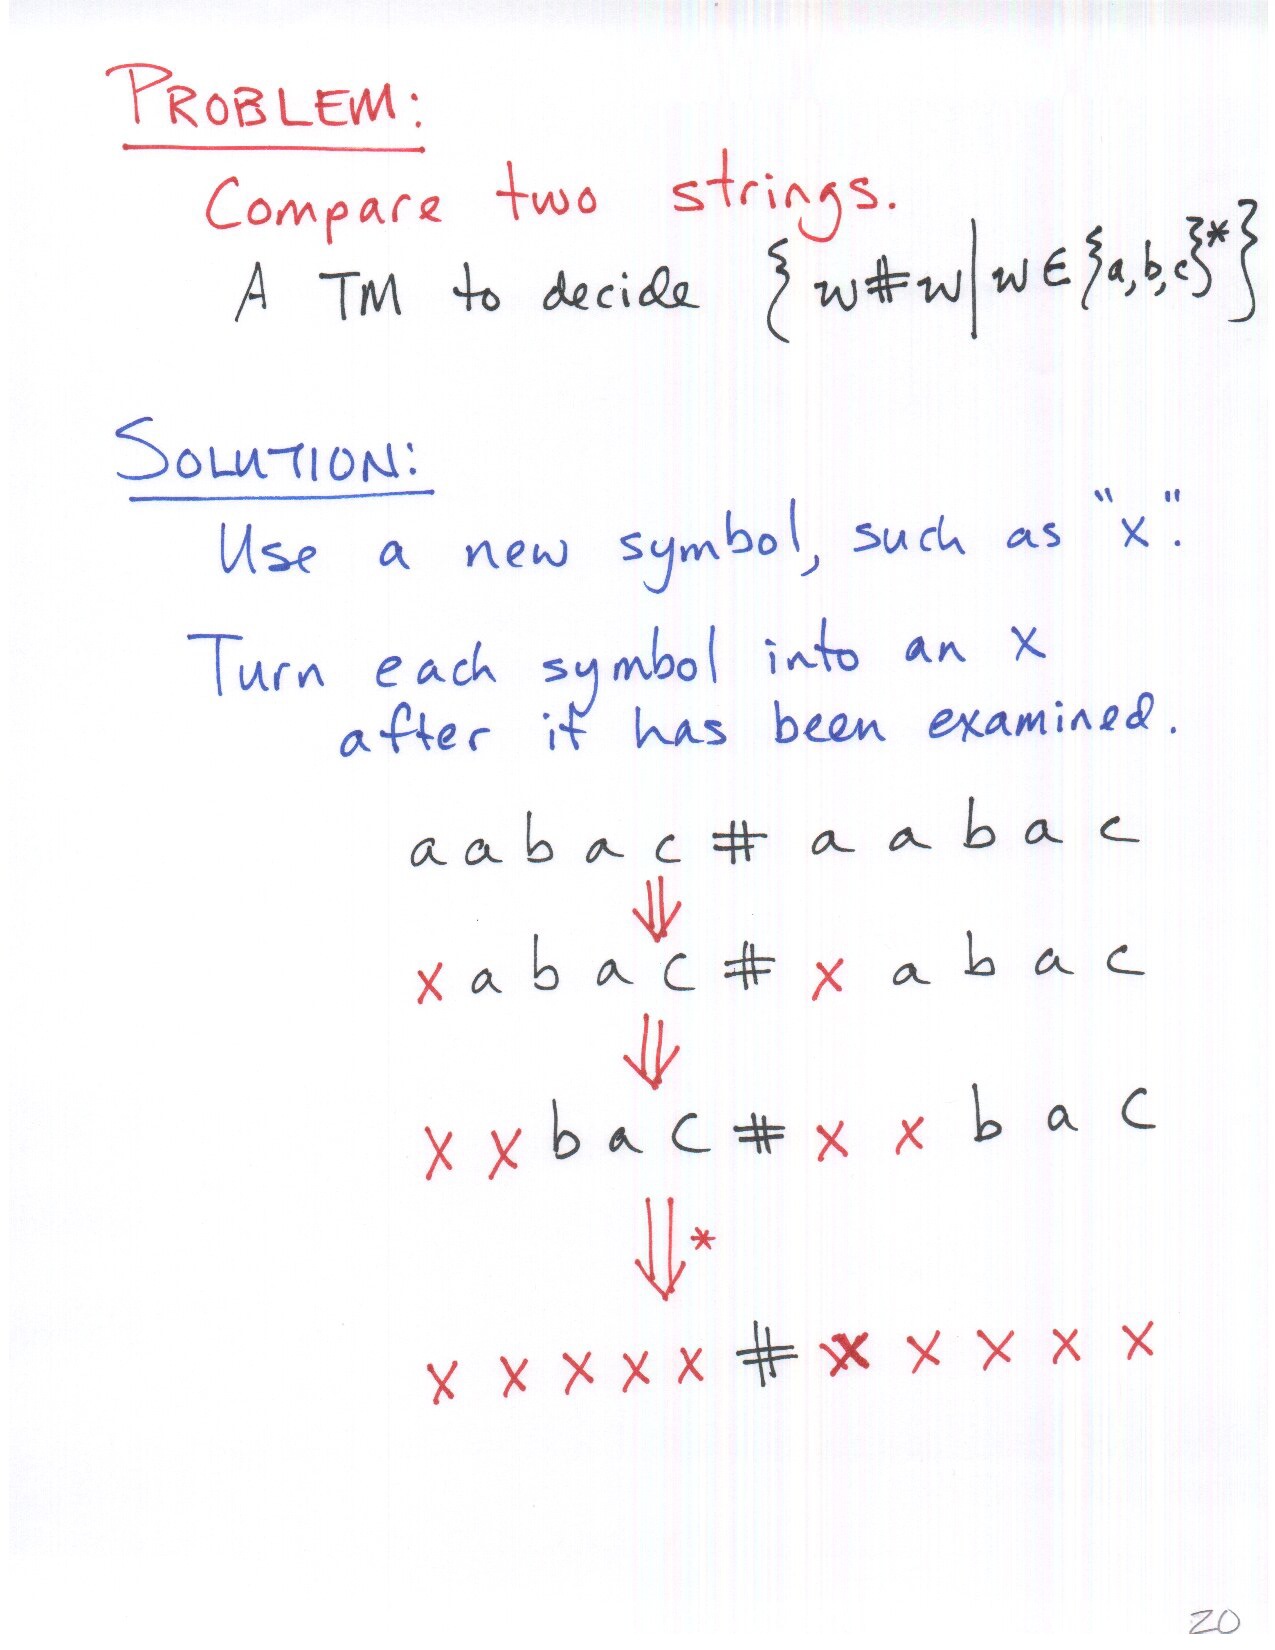 PROBLEM:
Compare two strings.
A TM to decide { w#w | w ∈ {a,b,c}* }
SOLUTION:
Use a new symbol, such as "x".
Turn each symbol into an x
after it has been examined.
a a b a c # a a b a c
⇓
x a b a c # x a b a c
⇓
x x b a c # x x b a c
⇓*
x x x x x # x x x x x
20